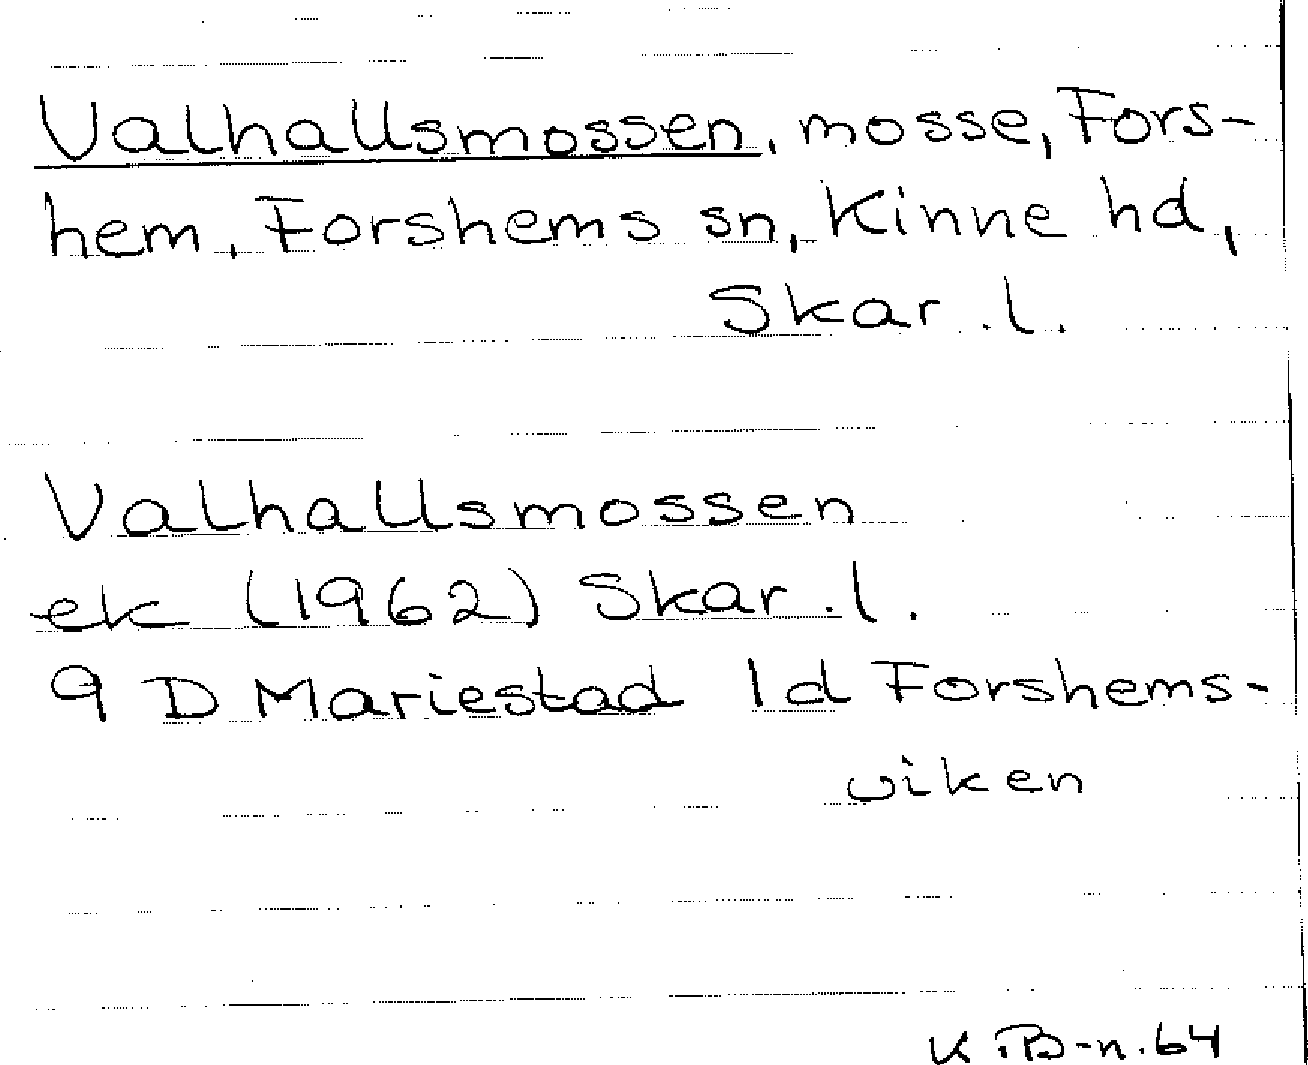 Valhallsmossen, mosse, Fors-
hem, Forshems sn, Kinne hd,
Skar.l.
Valhallsmossen
ek (1962) Skar.l.
9 D Mariestad 1d Forshems-
viken
K.B-n.64